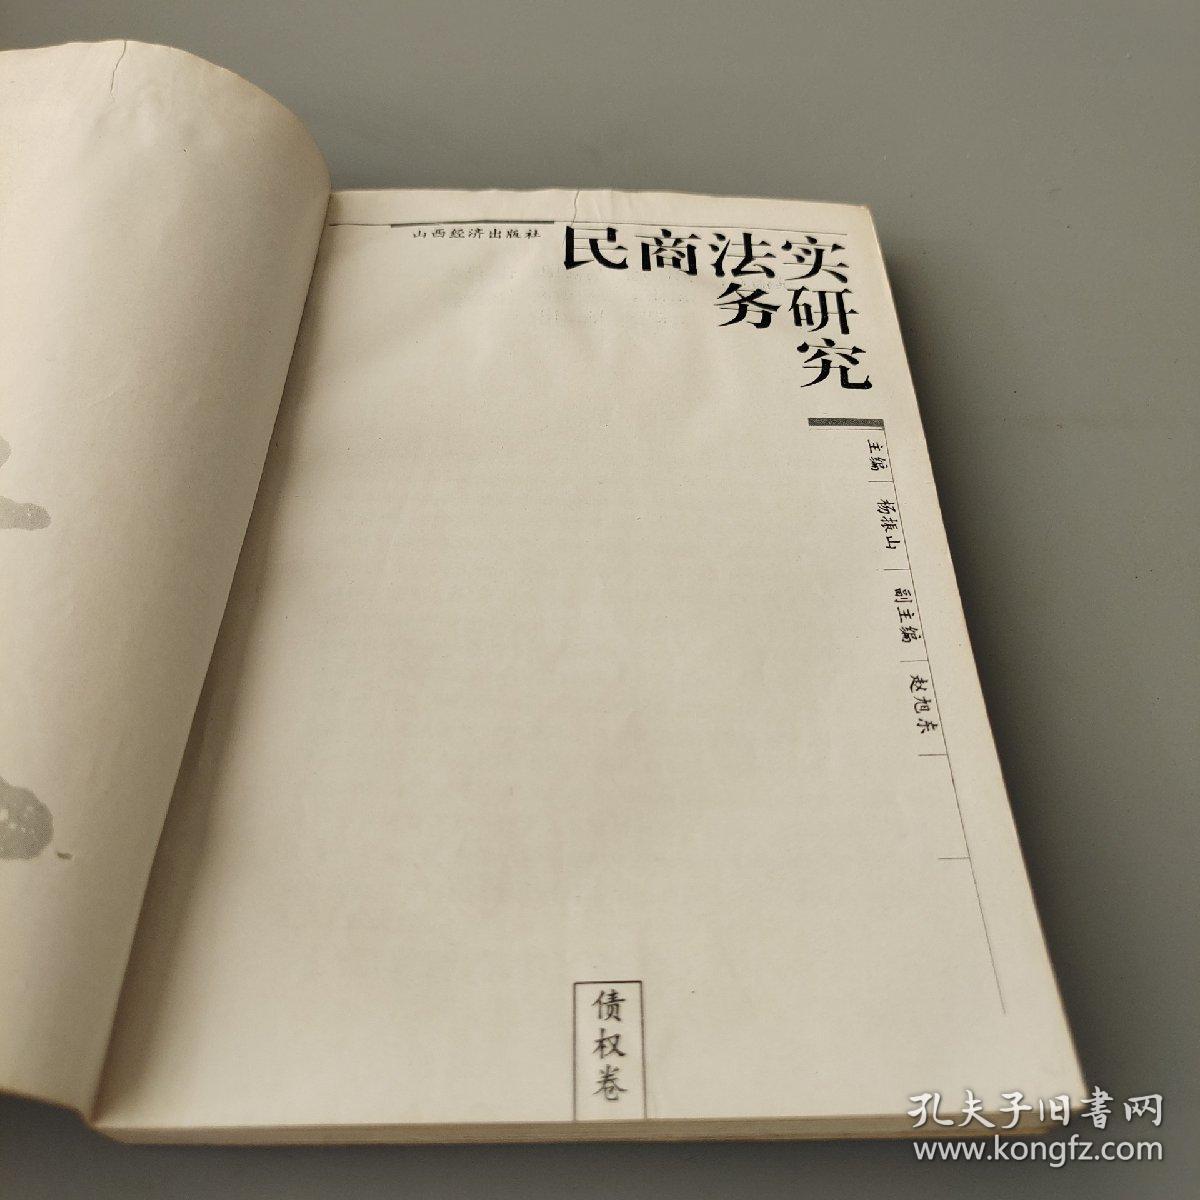 山西经济出版社
民商法实
务研
究
主编 杨振山 副主编 赵旭东
债权卷
孔夫子旧書网
www.kongfz.com